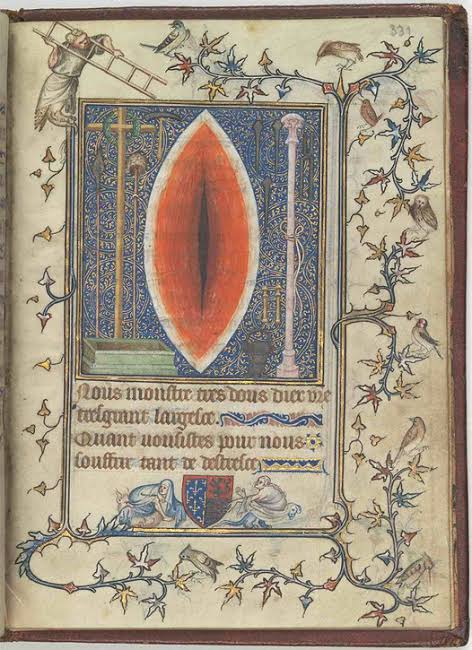 331
Nous monstre tres dous diex
tresgrant largesce.
Quant uousistes pour nous
souffrir tant de destresce